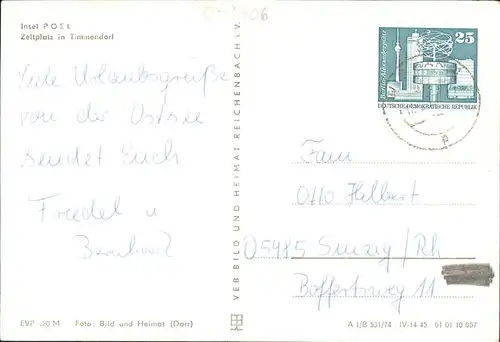 Insel POEL
Zeltplatz in Timmendorf
Viele Urlaubsgrüße
von der Ostsee
sendet Euch
Friedel u
VEB BILD UND HEIMAT REICHENBACH i.V.
25
Berlin-Alexanderplatz
DEUTSCHE DEMOKRATISCHE REPUBLIK
Fam
Helbert
D5485 Sinzig/Rh
11
EVP -,20 M Foto: Bild und Heimat (Darr)
A 1/B 331/74 IV-14-45 01 01 10 087